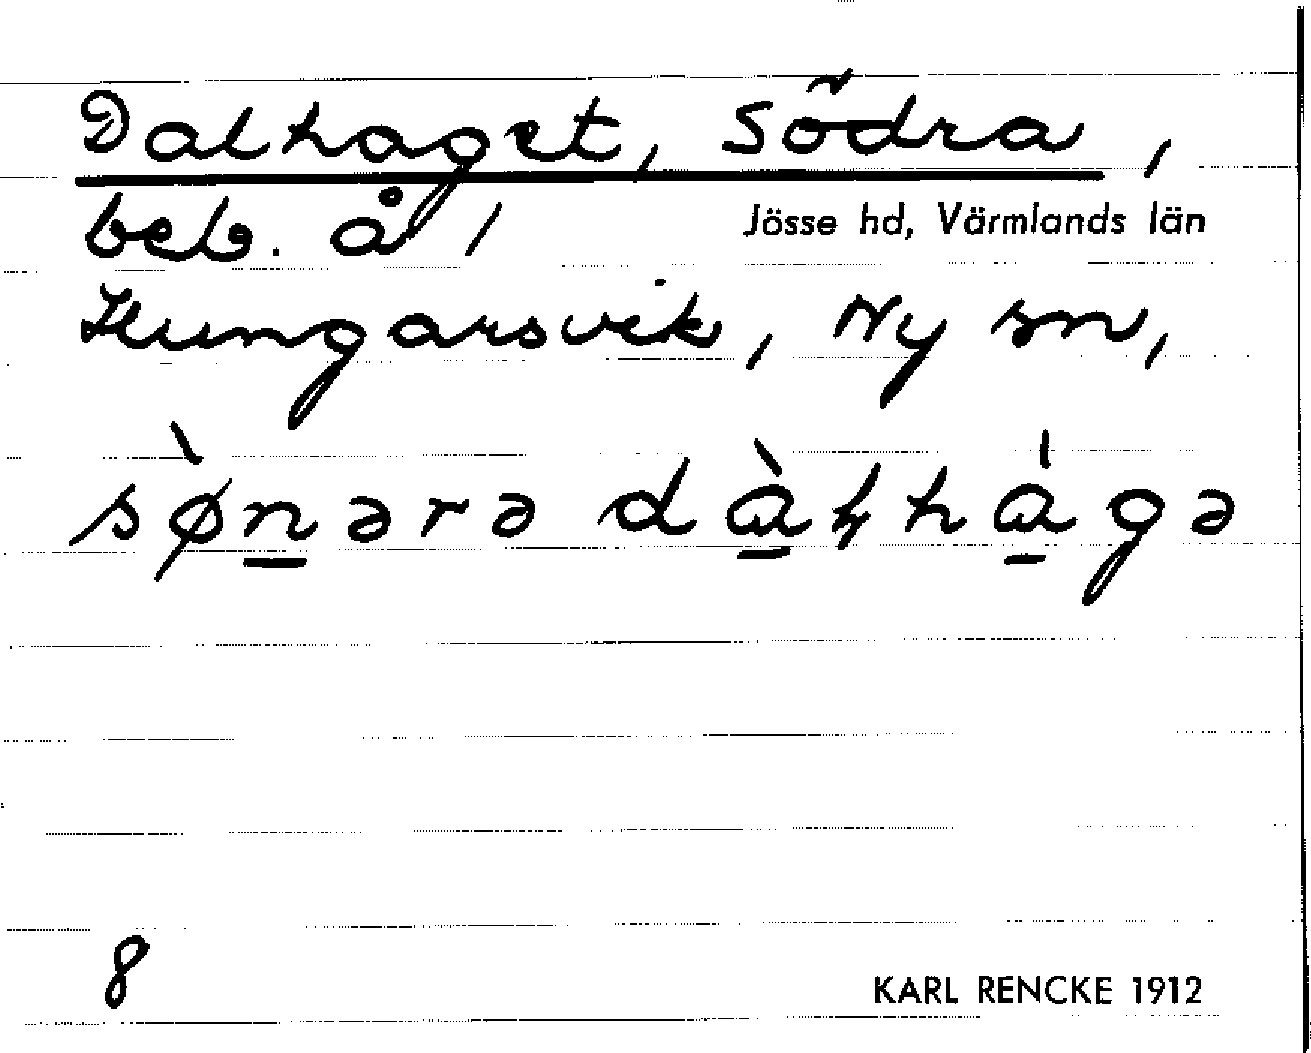 Dalhaget, Södra,
beb. å / Jösse hd, Värmlands län
Hungarsvik, Ny sn,
sø̀nərə dàɫhàgə
8
KARL RENCKE 1912